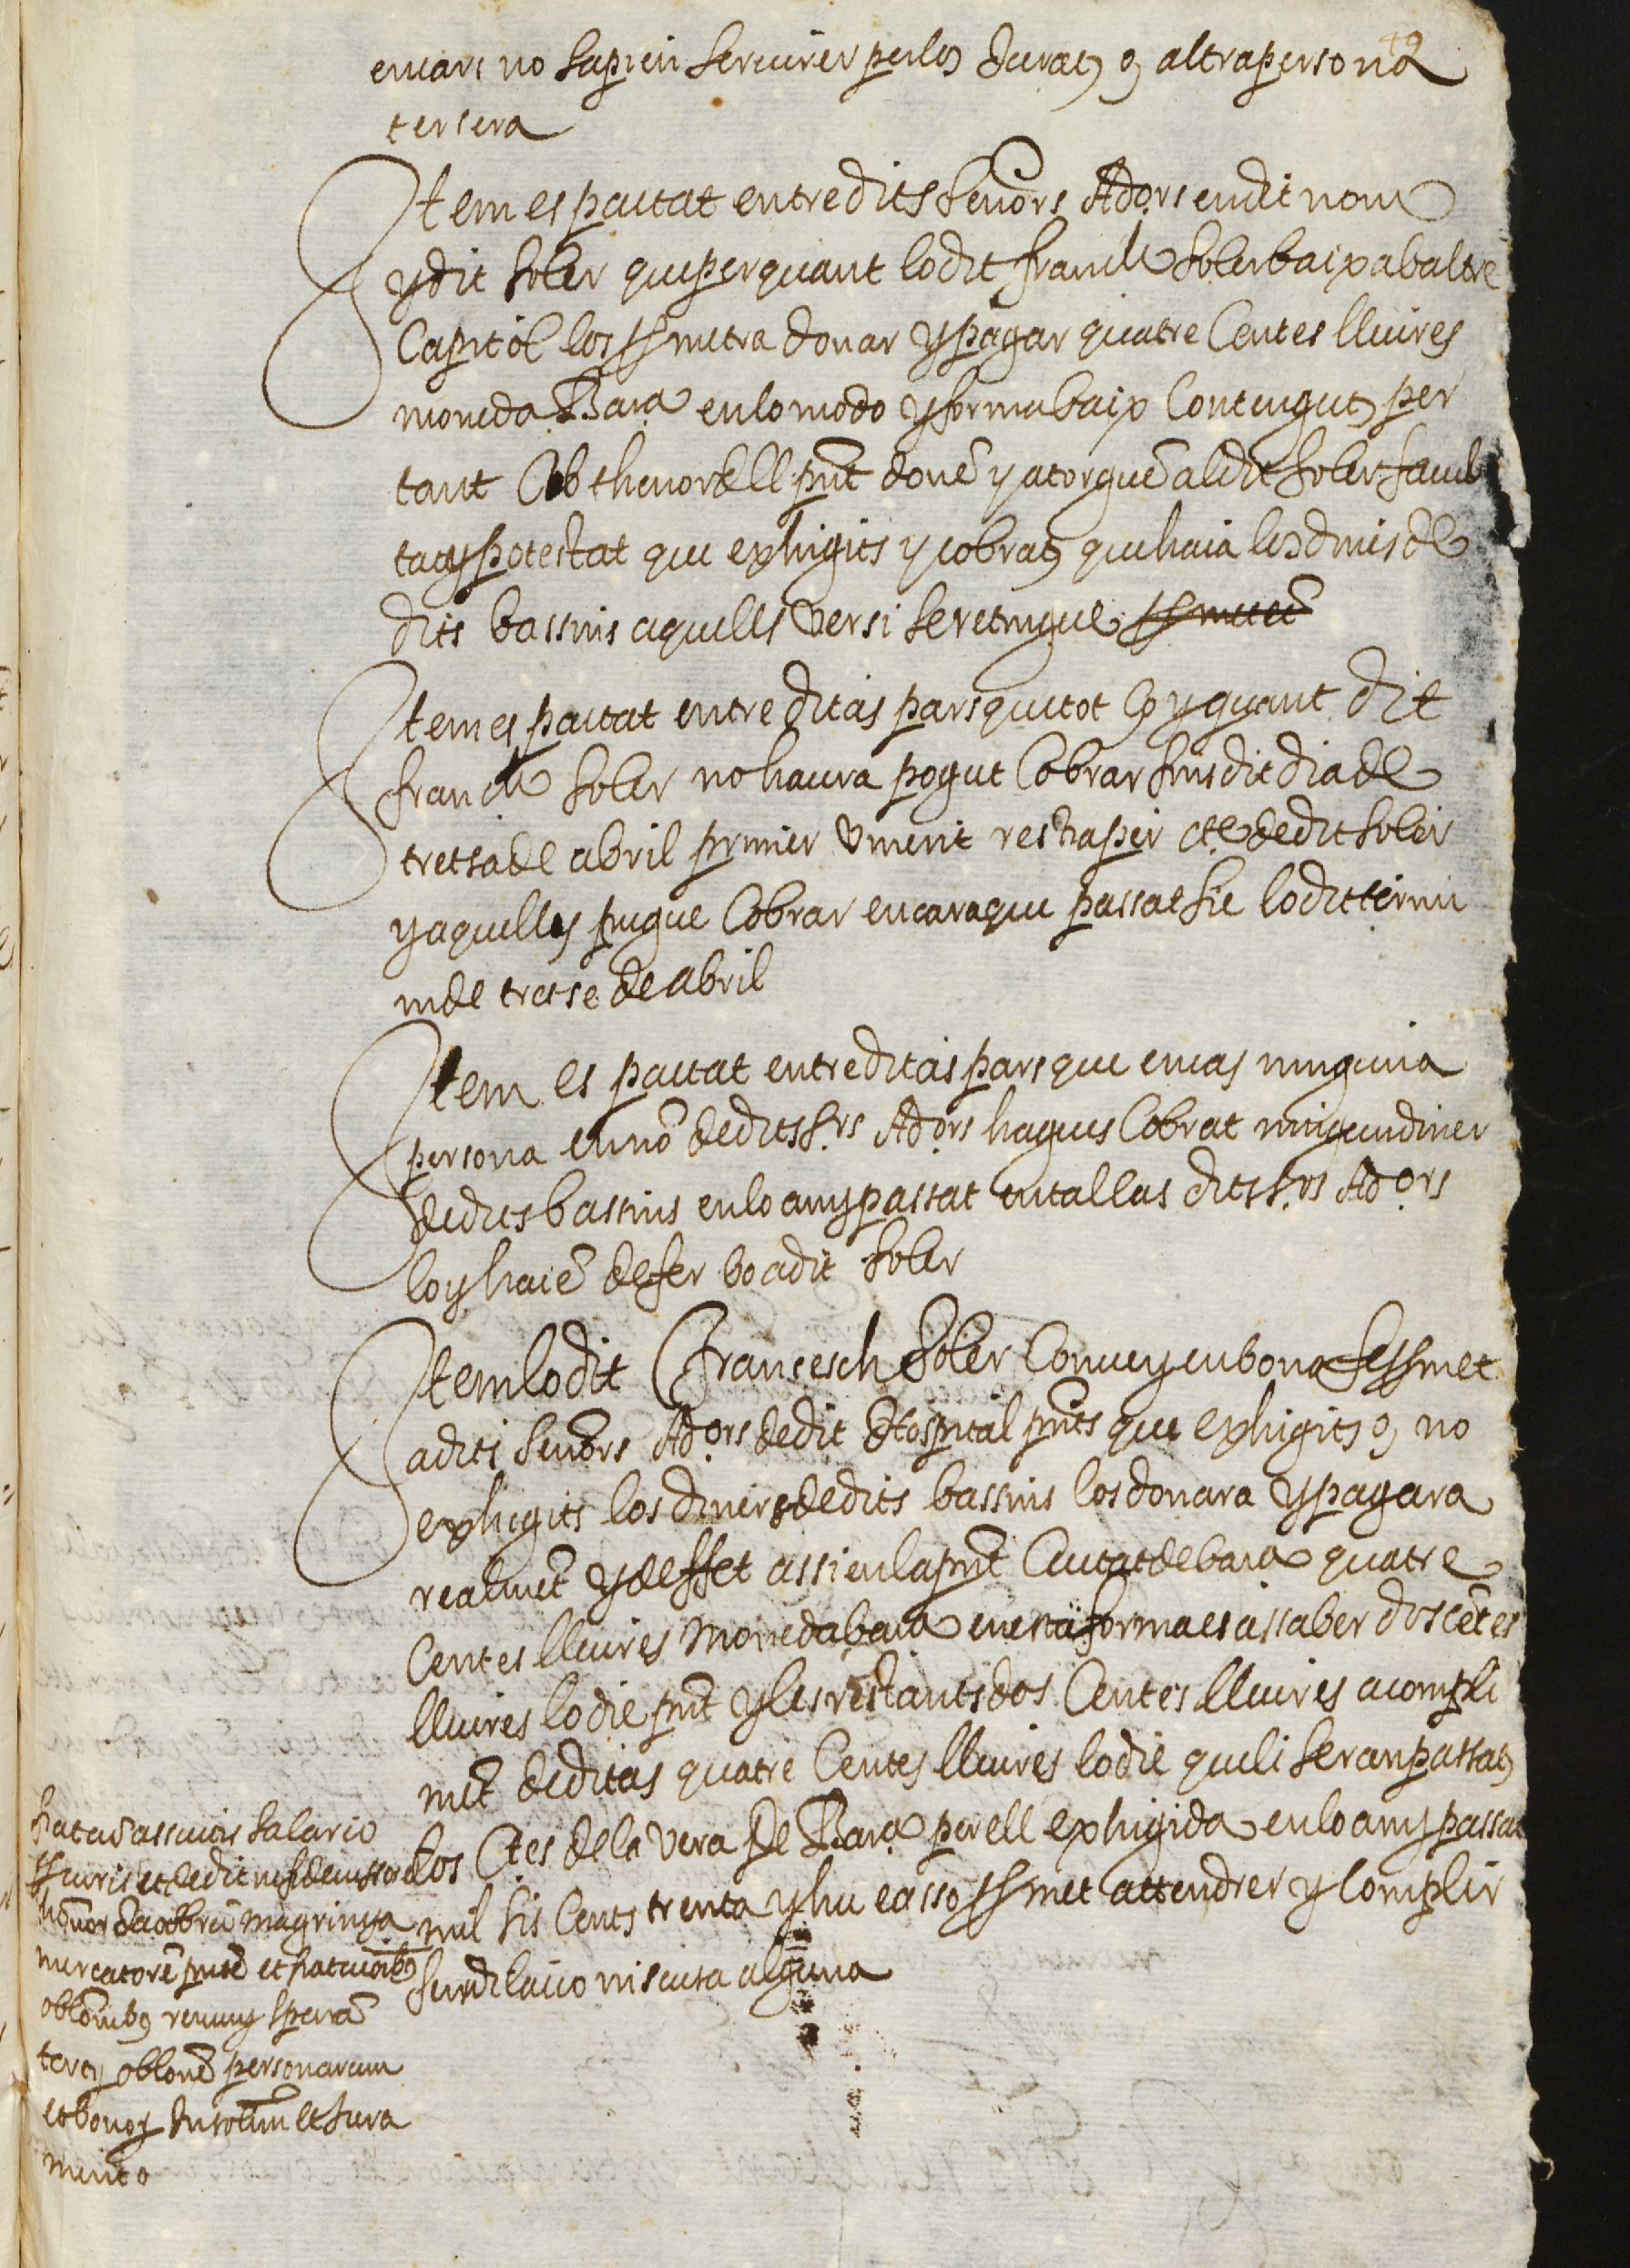 encars no sapien servirer per los Jurats o altra persona
tersera
Item es pactat entre dits Senors Ador.s en dit nom
y dit Soler que per quant lo dit franch Soler baix ab altre
Capitol los promtra donar y pagar quatre Centes lliures
moneda Bara en lo modo y forma baix Contengut per
tant Ab thenor dell pnt donē y atorguē al dit Soler facul
tat y potestat que exhigits y cobrats que haia los diners de
dits bassins aquells versi se retingue
Item es pactat entre ditas pars que tot lo y quant dit
franch Soler no haura pogut Cobrar fins dit dia de
tretsa de abril primer vinent resta per cte de dit Soler
y aquelles pugue Cobrar encara que passat sie lo dit termi
ni de tretse de Abril
Item es pactat entre ditas pars que en cas ninguna
persona en nō de dits S.rs Ador.s hagues Cobrat ningun diner
de dits bassins en lo any passat en tal cas dits S.rs Ador.s
lo y haiē de fer bo a dit Soler
Item lo dit Francesch Soler Conve y en bona fe promet
a dits Senors Ador.s de dit Hospital pnts que exhigits o no
exhigits los diners de dits bassins los donara y pagara
realmēt y de effet assi en la pnt Ciutat de bara quatre
Centes lliures Moneda bara en esta forma es assaber dos cētes
lliures lo die pnt y les restants dos Centes lliures a compli
mēt de ditas quatre Centes lliures lo die que li seran passats
los Ctes de la vera de Bara per ell exhigida en lo any passat
mil sis Cents trenta y hu e asso promet attendrer y Complir
sens dilacio ni scusa alguna
salario
magrinya
mercatorē
oblonē personarum
et bonor Insolium et Jura
mento